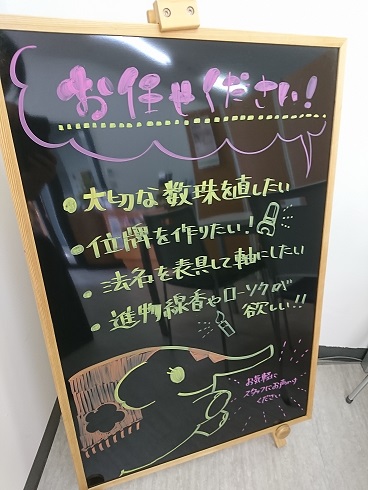 お任せください!
• 大切な数珠を直したい
• 位牌を作りたい!
• 法名を表具して軸にしたい
• 進物線香やローソクが
欲しい!!
お気軽に
スタッフにお声かけ
ください